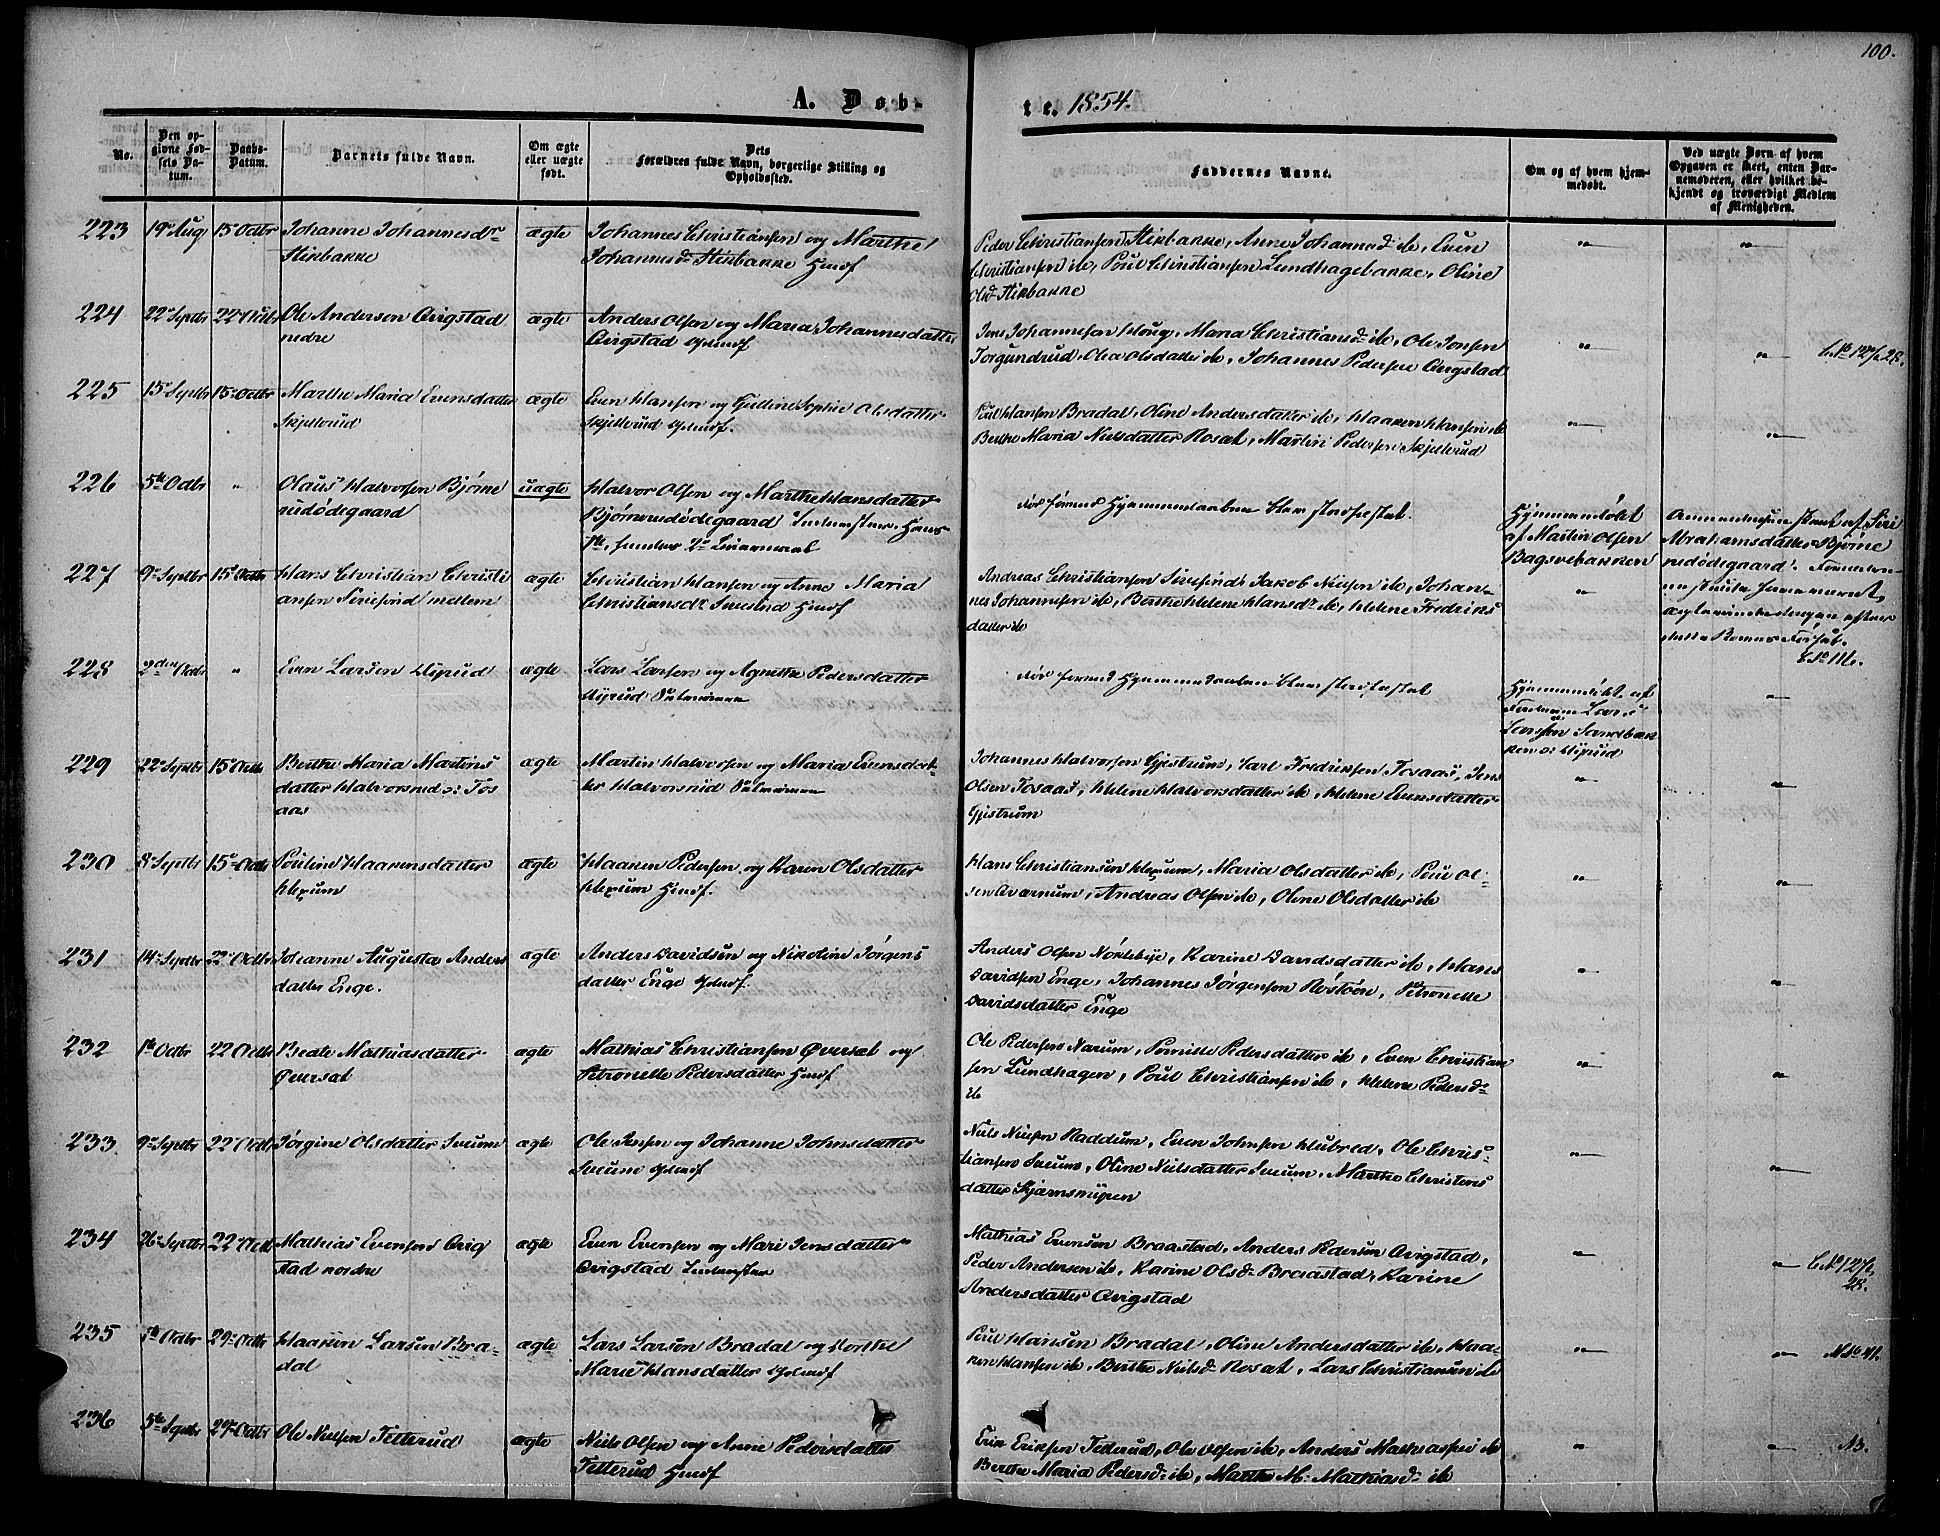 100.
A. Døb-
te. 1854.
No.
Den op-
givne Fød-
sels Da-
tum.
Daabs-
Datum.
Barnets fulde Navn.
Om ægte
eller uægte
født.
Dets
Forældres fulde Navn, borgerlige Stilling og
Opholdssted.
Faddernes Navne.
Om og af hvem hjem-
medøbt.
Ved uægte Børn af hvem
Opgaven er skeet, enten Bar-
nemoderen, eller hvilket be-
kjendt og troværdigt Medlem
af Menigheden.
223 19 Aug 15 Octbr Johanne Johannesdr
Stikbakke
ægte
Johannes Christiansen og Marthe
Johannesd Stikbakke Huusf
Peder Christiansen Stikbakke, Anne Johannesd ib, Even
Christiansen ib, Poul Christiansen Lundhagebakke, Oline
Olsd Stikbakke
224 22 Septbr 22 Octbr Ole Andersen Qvigstad
nedre
ægte
Anders Olsen og Maria Johannesdatter
Qvigstad
Jens Johannesen Houg, Maria Christiansd ib, Ole Jonsen
Torgundrud, Olea Olsdatter ib, Johannes Pedersen Qvigstad
225 15 Septbr 15 Octbr Marthe Maria Evensdatter
Skjellerud
ægte
Even Hansen og Gulline Sophie Olsdatter
Skjellerud
Poul Hansen Bradal, Oline Andersdatter ib, Haaken Hansen ib
Berthe Maria Nielsdatter Rosæt, Martin Pedersen Skjellerud
226 5te Octbr " Olaus Halvorsen Bjørne
rudødegaard
uægte
Halvor Olsen og Marthe Hansdatter
Bjørnerudødegaard
død førend Hjemmedaaben blev stadfæstet.
Hjemmedøbt
af Martin Olsen
Bagsvebakken
Abrahamsdatter Bjørne
rudødegaard.
227 9 Septbr 15 Octbr Hans Christian Christi
ansen Sivesind mellem
ægte
Christian Hansen og Anne Maria
Christiansdr Sivesind Huusf
Andreas Christiansen Sivesind, Jakob Nielsen ib, Johan-
nes Johannesen ib, Berthe Helene Hansdr ib, Helene Fredriks
datter ib
228 2den Octbr " Even Larsen Myrud
ægte
Lars Larsen og Agnethe Pedersdatter
Myrud
død førend Hjemmedaaben blev stadfæstet
Hjemmedøbt af
Larsen Sandbak
ken Myrud
229 22 Septbr 15 Octbr Berthe Maria Martins
datter Halvorsrud Tos
aas
ægte
Martin Halvorsen og Maria Evensdat-
ter Halvorsrud
Johannes Halvorsen Gjestrum, Carl Fredriksen Tosaas, Jens
Olsen Tosaas, Helene Halvorsdatter ib, Helene Evensdatter
Gjestrum
230 8 Septbr 15 Octbr Pouline Haakensdatter
Hexum
ægte
Haaken Pedersen og Karen Olsdatter
Hexum Huusf.
Hans Christiansen Hexum, Maria Olsdatter ib, Poul Ol-
sen Qværnum, Andreas Olsen ib, Oline Olsdatter ib
231 14 Septbr 22 Octbr Johanne Augusta Anders
datter Enge.
ægte
Anders Davidsen og Nikoline Jørgens
datter Enge
Anders Olsen Nøkleby, Karine Davidsdatter ib, Hans
Davidsen Enge, Johannes Jørgensen Røstøen, Petronelle
Davidsdatter Enge
232 1te Octbr 22 Octbr Beate Mathiasdatter
Øversæt
ægte
Mathias Christiansen Øversæt og
Petronelle Pedersdatter Huusf
Ole Pedersen Narum, Pernille Pedersdatter ib, Even Christian
sen Lundhagen, Poul Christiansen ib, Helene Pedersd
ib
233 9 Septbr 22 Octbr Jørgine Olsdatter Sveum
ægte
Ole Jensen og Johanne Johnsdatter
Sveum
Niels Nielsen Raddum, Even Johnsen Klubred, Ole Chris-
tiansen Sveum, Oline Nielsdatter Sveum, Marthe Christens
datter Skjærnsmyren
234 26 Septbr 22 Octbr Mathias Evensen Qvig
stad nordre
ægte
Even Evensen og Mari Jensdatter
Qvigstad
Mathias Evensen Braastad, Anders Pedersen Qvigstad,
Peder Andersen ib, Karine Olsd Braastad, Karine
Andersdatter Qvigstad
235 Octbr 29 Octbr Haaken Larsen Bra-
dal
ægte
Lars Larsen Bradal og Dorthe
Marie Hansdatter
Poul Hansen Bradal, Oline Andersdatter ib, Haa-
ken Hansen ib, Berthe Nielsd Rosæt, Lars Christiansen ib
236 5te Septbr 29 Octbr Ole Nielsen Tetterud
ægte
Niels Olsen og Anne Pedersdatter
Tetterud Huusf
Erik Eriksen Tetterud, Ole Olsen ib, Anders Mathiasen ib
Berthe Maria Pedersd ib, Marthe M: Mathiasd ib